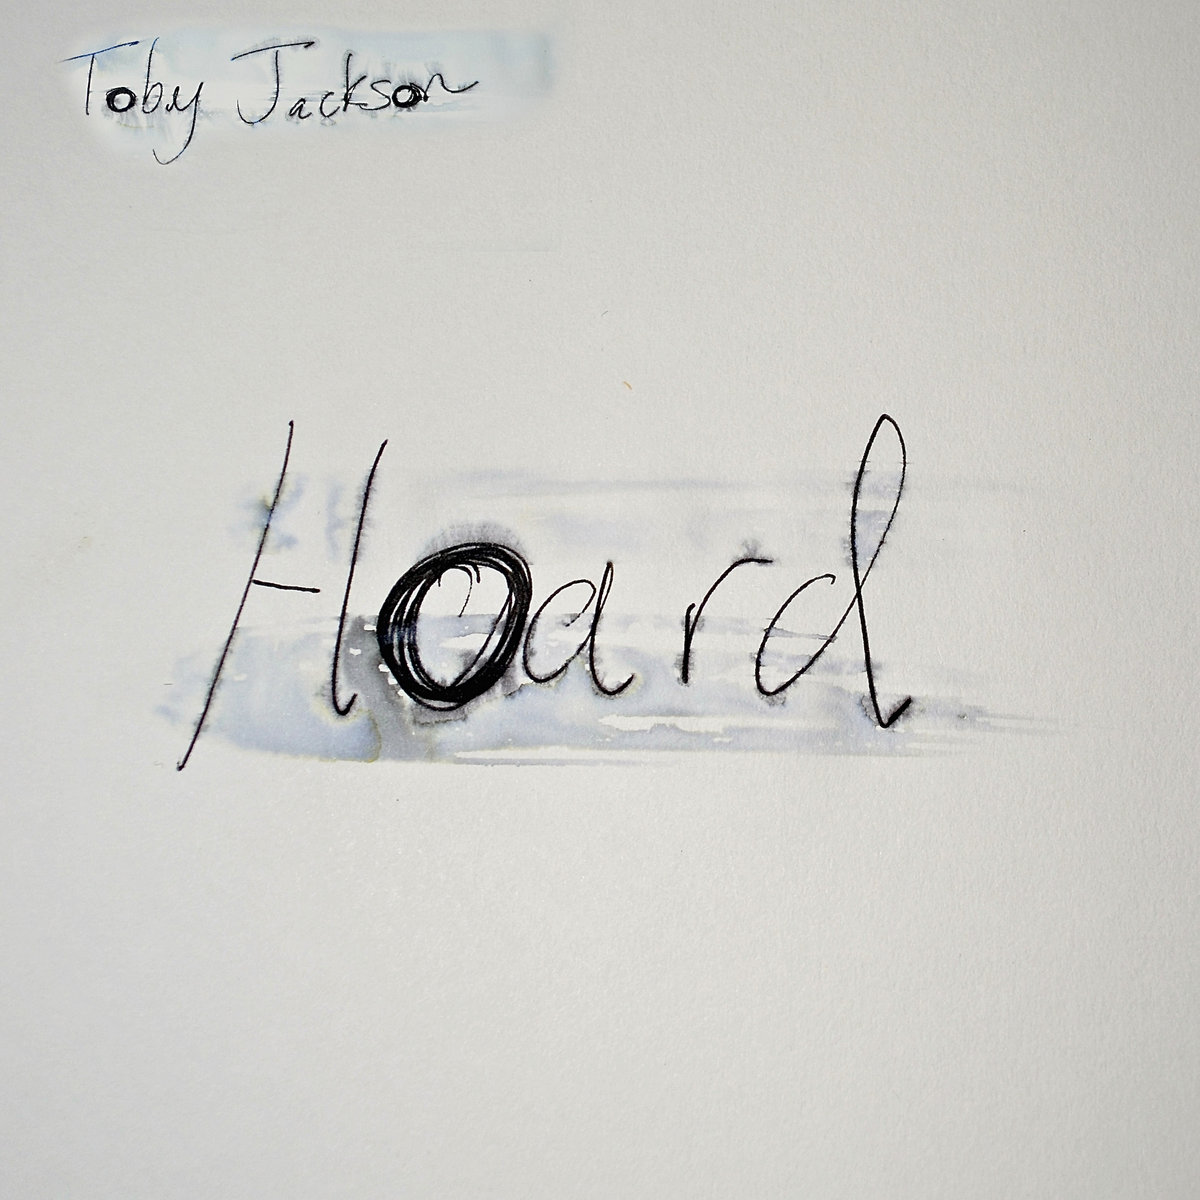 Toby Jackson
Hoard